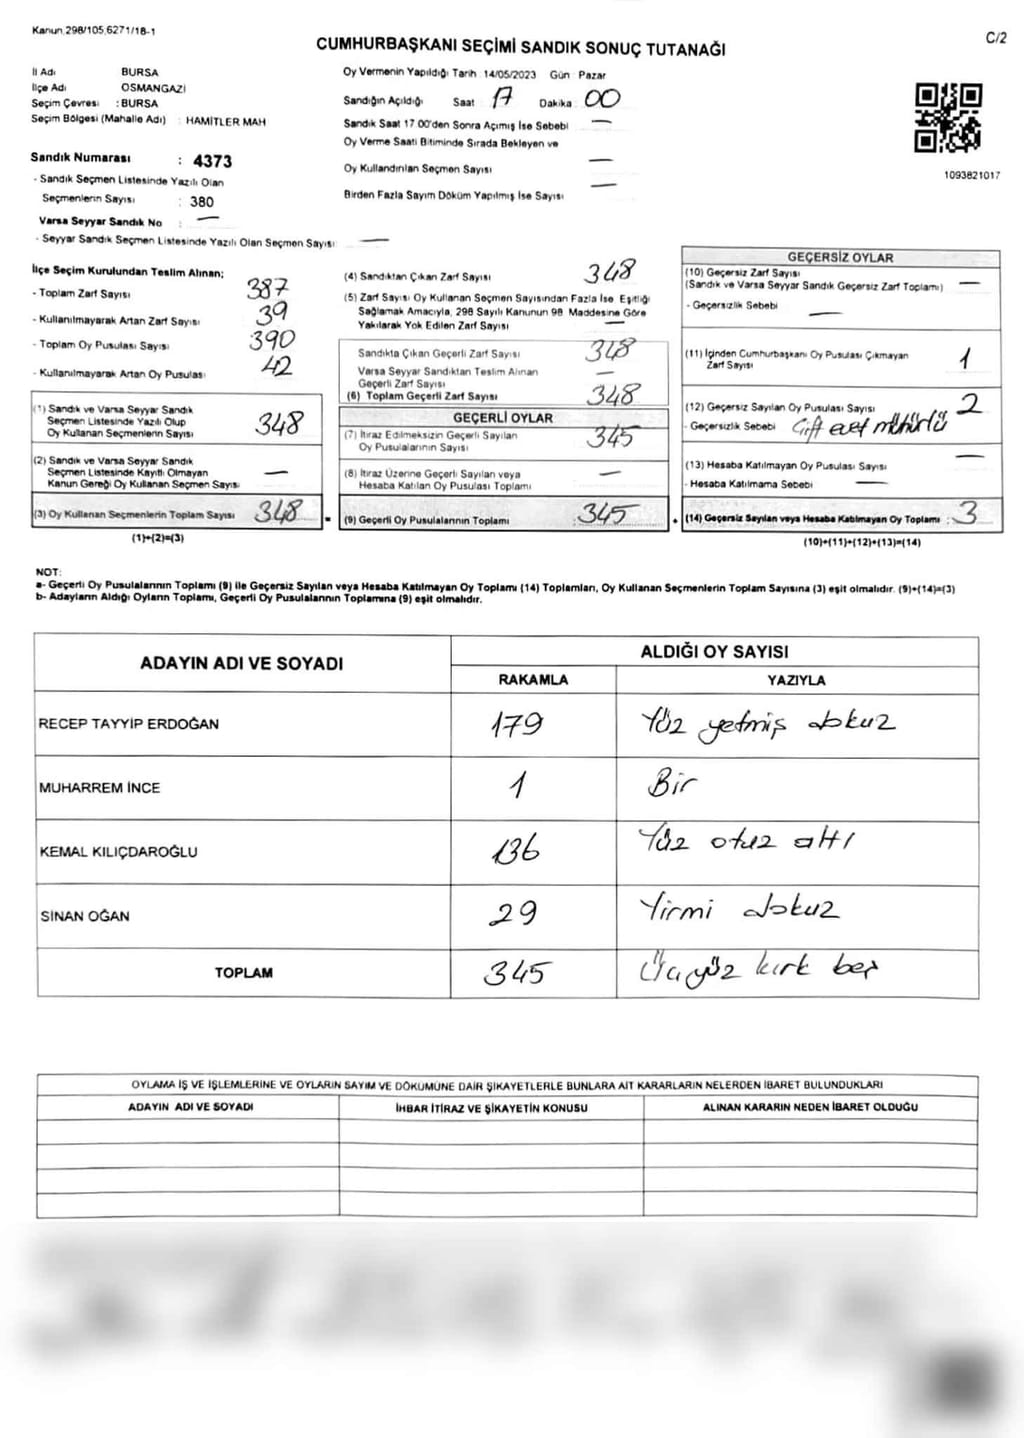 Kanun 298/105,6271/18-1
C/2
CUMHURBAŞKANI SEÇİMİ SANDIK SONUÇ TUTANAĞI
İl Adı BURSA
İlçe Adı OSMANGAZİ
Seçim Çevresi : BURSA
Seçim Bölgesi (Mahalle Adı) : HAMİTLER MAH
Sandık Numarası : 4373
- Sandık Seçmen Listesinde Yazılı Olan
Seçmenlerin Sayısı : 380
Varsa Seyyar Sandık No : —
- Seyyar Sandık Seçmen Listesinde Yazılı Olan Seçmen Sayısı: —
Oy Vermenin Yapıldığı Tarih 14/05/2023 Gün Pazar
Sandığın Açıldığı Saat 17 Dakika 00
Sandık Saat 17 00'den Sonra Açımış İse Sebebi —
Oy Verme Saati Bitiminde Sırada Bekleyen ve
Oy Kullandırılan Seçmen Sayısı —
Birden Fazla Sayım Döküm Yapılmış İse Sayısı —
1093821017
İlçe Seçim Kurulundan Teslim Alınan;
- Toplam Zarf Sayısı 387
- Kullanılmayarak Artan Zarf Sayısı 39
- Toplam Oy Pusulası Sayısı 390
- Kullanılmayarak Artan Oy Pusulası 42
(1) Sandık ve Varsa Seyyar Sandık
Seçmen Listesinde Yazılı Olup
Oy Kullanan Seçmenlerin Sayısı 348
(2) Sandık ve Varsa Seyyar Sandık
Seçmen Listesinde Kayıtlı Olmayan
Kanun Gereği Oy Kullanan Seçmen Sayısı —
(3) Oy Kullanan Seçmenlerin Toplam Sayısı 348
(1)+(2)=(3)
(4) Sandıktan Çıkan Zarf Sayısı 348
(5) Zarf Sayısı Oy Kullanan Seçmen Sayısından Fazla İse Eşitliği
Sağlamak Amacıyla, 298 Sayılı Kanunun 98 Maddesine Göre
Yakılarak Yok Edilen Zarf Sayısı —
Sandıkta Çıkan Geçerli Zarf Sayısı 348
Varsa Seyyar Sandıktan Teslim Alınan
Geçerli Zarf Sayısı —
(6) Toplam Geçerli Zarf Sayısı 348
GEÇERLİ OYLAR
(7) İtiraz Edilmeksizin Geçerli Sayılan
Oy Pusulalarının Sayısı 345
(8) İtiraz Üzerine Geçerli Sayılan veya
Hesaba Katılan Oy Pusulası Toplamı —
(9) Geçerli Oy Pusulalarının Toplamı 345
GEÇERSİZ OYLAR
(10) Geçersiz Zarf Sayısı
(Sandık ve Varsa Seyyar Sandık Geçersiz Zarf Toplamı) —
- Geçersizlik Sebebi —
(11) İçinden Cumhurbaşkanı Oy Pusulası Çıkmayan
Zarf Sayısı 1
(12) Geçersiz Sayılan Oy Pusulası Sayısı 2
- Geçersizlik Sebebi Çift evet mühürlü
(13) Hesaba Katılmayan Oy Pusulası Sayısı —
- Hesaba Katılmama Sebebi —
(14) Geçersiz Sayılan veya Hesaba Katılmayan Oy Toplamı : 3
(10)+(11)+(12)+(13)=(14)
NOT:
a- Geçerli Oy Pusulalarının Toplamı (9) ile Geçersiz Sayılan veya Hesaba Katılmayan Oy Toplamı (14) Toplamları, Oy Kullanan Seçmenlerin Toplam Sayısına (3) eşit olmalıdır. (9)+(14)=(3)
b- Adayların Aldığı Oyların Toplamı, Geçerli Oy Pusulalarının Toplamına (9) eşit olmalıdır.
ADAYIN ADI VE SOYADI ALDIĞI OY SAYISI
RAKAMLA YAZIYLA
RECEP TAYYİP ERDOĞAN 179 Yüz yetmiş dokuz
MUHARREM İNCE 1 Bir
KEMAL KILIÇDAROĞLU 136 Yüz otuz altı
SİNAN OĞAN 29 Yirmi dokuz
TOPLAM 345 Üçyüz kırk beş
OYLAMA İŞ VE İŞLEMLERİNE VE OYLARIN SAYIM VE DÖKÜMÜNE DAİR ŞİKAYETLERLE BUNLARA AİT KARARLARIN NELERDEN İBARET BULUNDUKLARI
ADAYIN ADI VE SOYADI İHBAR İTİRAZ VE ŞİKAYETİN KONUSU ALINAN KARARIN NEDEN İBARET OLDUĞU